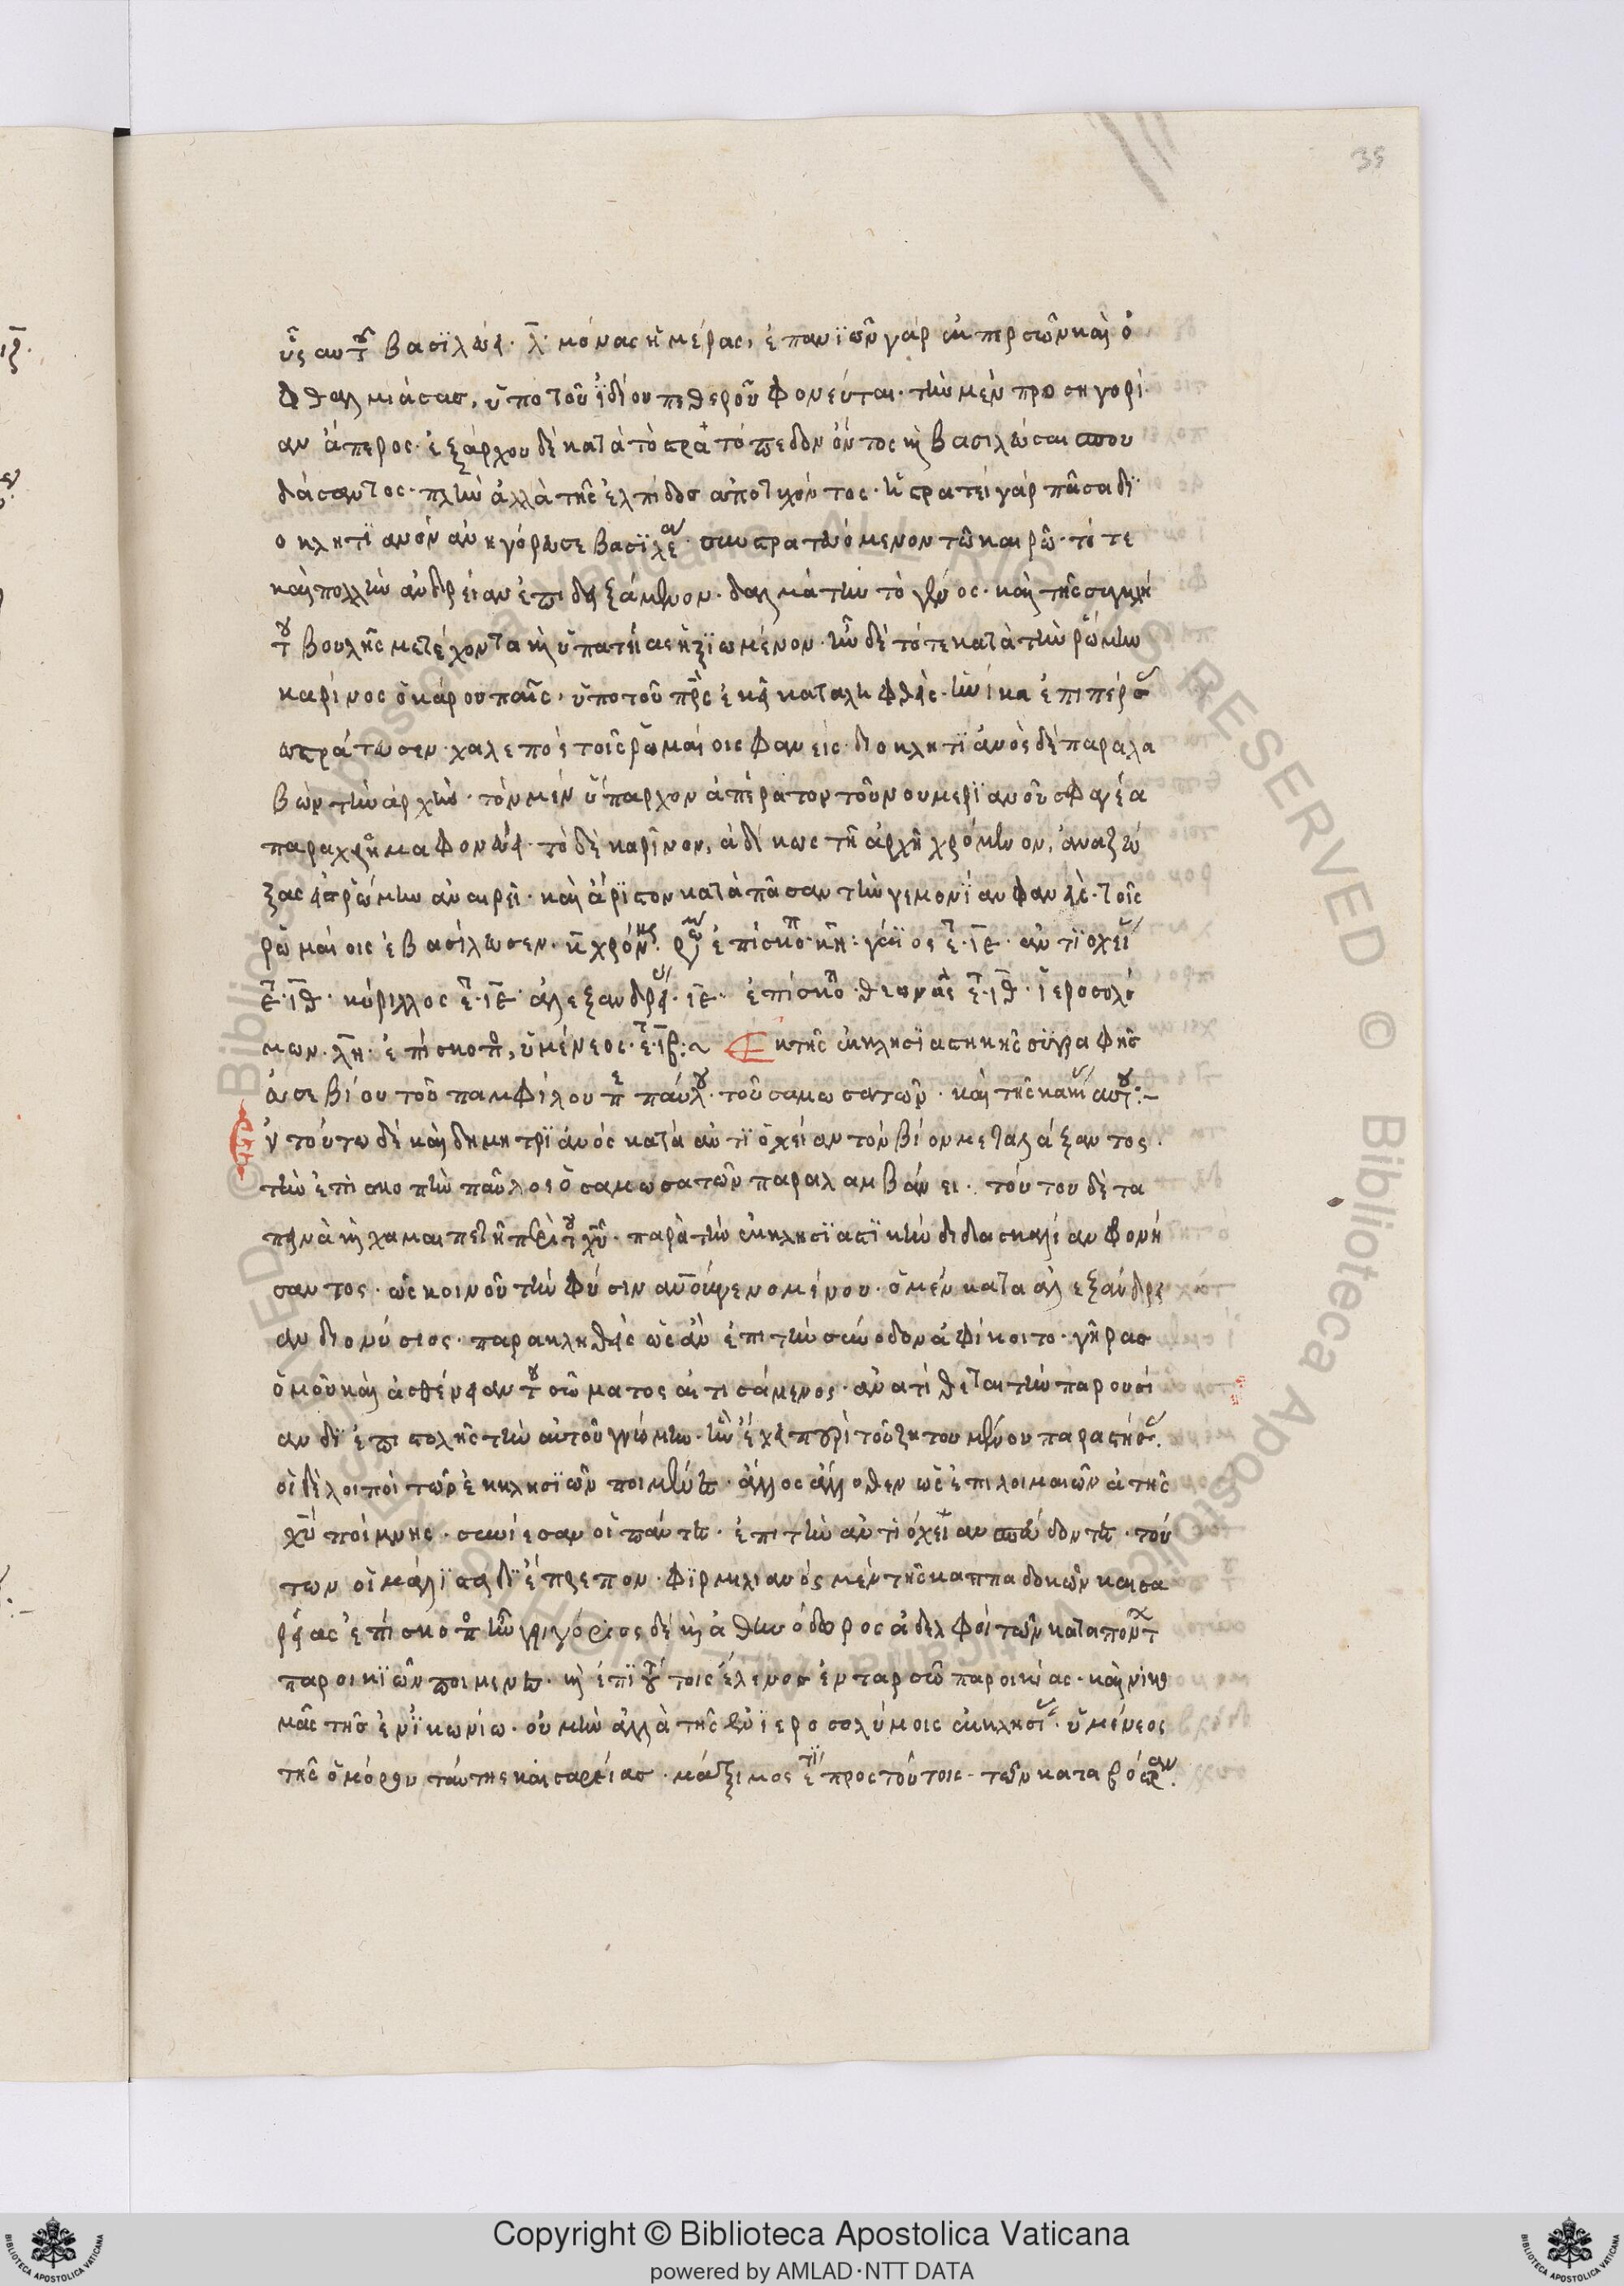 35
ὑς αυτοῦ βασϊλεύει· λ· μόνας ἡμέρας, ἐπανϊὼν γάρ ἐκ περσῶν καὶ ὀ
φθαλμιάσας, ὑπο τοῦ ἰδίου πεθεροῦ φονεύται· την μέν προσηγορί
αν ἄπερος· ἐξάρχου δὲ κατὰ τὸ στρατόπεδον ὄντος κὶ βασιλεῦσαι σπου
δάσαντος· πλὴν ἀλλὰ τῆς ἐλπίδοσ αποτυχόντος· ἡ στρατεί γάρ πᾶσα δϊ
οκλητϊανόν ἀνηγόρευσε βασϊλέαν· συστρατευόμενον τῶ καιρῶ· τό τε
καὶ πολλὴν ἀνδρείαν ἐπιδειξάμενον· δαλμάτην τὸ γένος· καὶ τῆς συγκλή
του βουλῆς μετέχοντα κὶ ὑπατείας ἠξϊωμένον· ἦν δὲ τότε κατὰ τὴν ῥώμην
καρίνος ὁ κάρου παῖς, ὑπο τοῦ πρς ἐκεῖ καταληφθεὶς· ἡνίκα ἐπι πέρσας
ἐστράτευσεν· χαλεπός τοῖς ῥωμαίοις φανείς· διοκλητϊάνὸς δὲ παραλα
βὼν τὴν ἀρχὴν· τὸν μέν ὕπαρχον ἄπερα τὸν τοῦ νουμερϊανοῦ σφαγέα
παραχρῆμα φονεύει· τὸ δὲ καρῖνον, ἀδίκως τῆ ἀρχῆ χρόμενον, ἀναζεύ
ξας εἰσ ῥώμην ἀναιρεῖ· καὶ ἄρϊστον κατὰ πᾶσαν τὴν γεμονίαν φανεὶς· τοῖς
ῥωμαίοις ἐβασίλευσεν· κ χρόνους· ῥωμ ἐπίσκοπ κη: γάϊος ἔτ· ιε· ἀντϊοχεί
ἐπ· ιθ· κύριλλος ἔτ· ιε· ἀλεξανδρεί· ιε· ἐπίσκο· θεωνᾶς ἔτ· ιθ· ἱεροσολύ
μων· λη· ἐπίσκοπο, ὑμένεος· ἔτ ιβ:~ Εκ της ἐκκλησϊαστικῆς σϋγραφῆσ
ἐυσεβίου τοῦ παμφίλου περ παύλου· τοῦ σαμωσατων· καὶ τῆς κατ αυτου:-
Εν τούτω δὲ καὶ δημητρϊάνός κατὰ ἀντϊόχείαν τὸν βίον μεταλάξαντος·
τὴν ἐπισκοπὴν παῦλος ὁ σαμωσατῶν παραλαμβάνει· τούτου δὲ τα
πεινὰ κὶ χαμαιπετῆ περὶ του χυ· παρὰ τὴν ἐκκλησϊαστϊκὴν διδασκαλίαν φρονή
σαντος· ὡς κοινοῦ τὴν φύσιν ανου γενομένου· ὁ μέν κατα ἀλεξάνδρει
αν διονύσιος· παρακληθεὶς ὡς ἀν ἐπι τὴν σύνοδον ἀφίκοιτο· γῆρας
ὁμοῦ καὶ ἀσθένειαν του σώματος αἰτισάμενος· ἀνατίθεται τὴν παρουσί
αν δϊ ἐπιστολῆς τὴν αὐτοῦ γνώμην· ἣν ἔχει περὶ τοῦ ζητουμένου παραστήσας·
οἱ δὲ λοιποὶ τῶν ἐκκλησϊῶν ποιμένες· ἄλλος ἄλλοθεν ὡς ἐπι λοιμαιῶνα τῆς
χυ ποίμνης· συνίεσαν οἱ πάντες· ἐπι τὴν ἀντιόχεῖαν σπεύδοντες· τού
των οἱ μάλϊστα δϊέπρεπον· φϊρμιλιανός μέν τῆς καππαδοκῶν καισα
ρείας ἐπίσκοπο ἦν γρηγόριος δὲ κὶ ἀθηνόδορος ἀδελφοί τῶν κατα πόντ
παροικϊῶν ποιμενες· κὶ ἐπϊ τούτοις ἕλενος ἐν ταρσῶ παροικίας· καὶ νικο
μᾶς τῆσ ἐνϊκωνίω· οὐ μὴν ἀλλὰ τῆς ἐν ϊεροσολύμοις ἐκκλησίας· ὑμένεος
τῆς ὁμόρου ταύτης καισαρείας· μάξιμος ἔτϊ πρὸς τούτοις· τῶν κατα βόστραν·
Copyright © Biblioteca Apostolica Vaticana
powered by AMLAD·NTT DATA